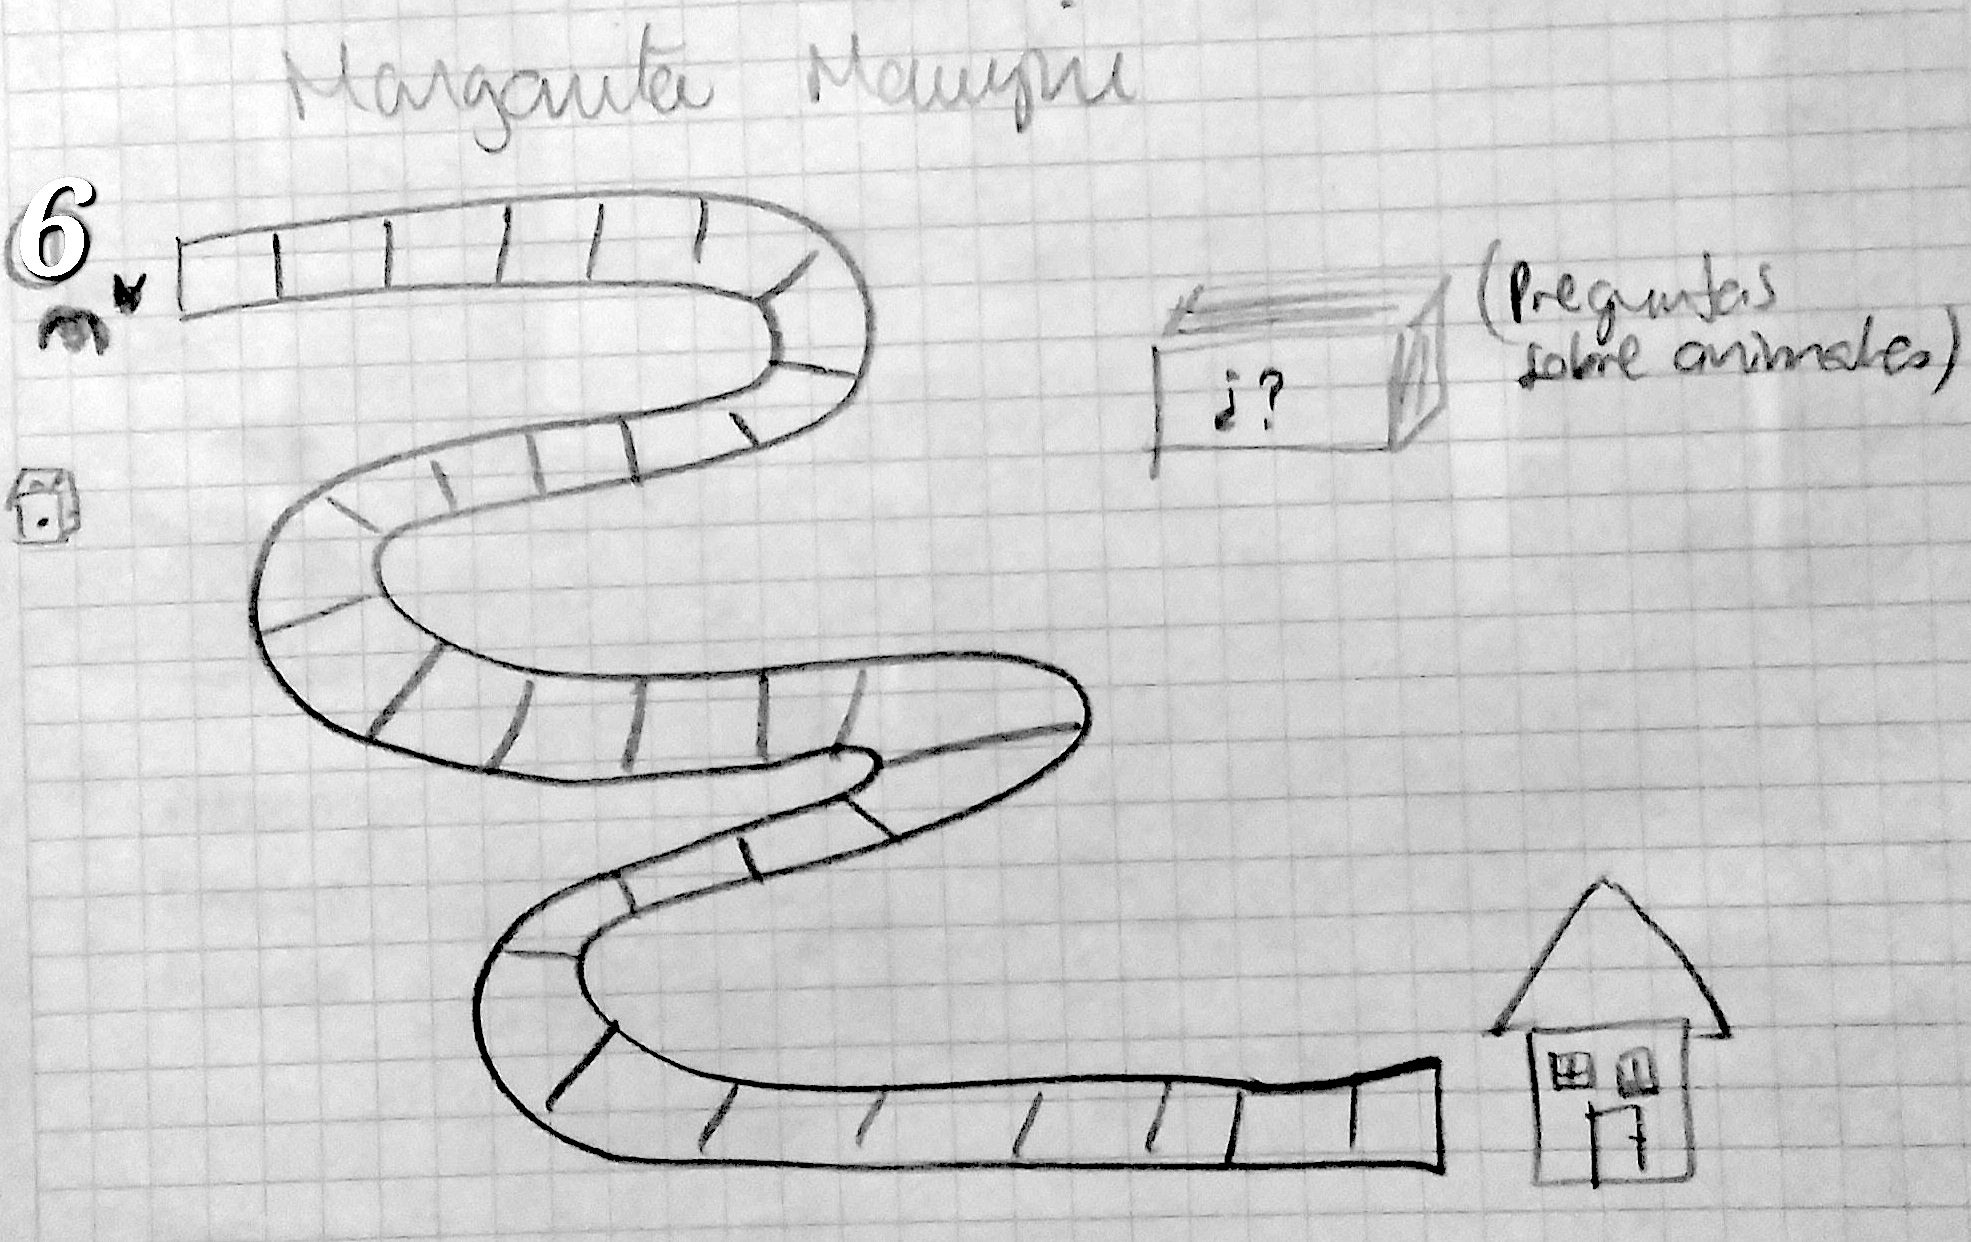 Margarita
6
(Preguntas
sobre animales)
¿?